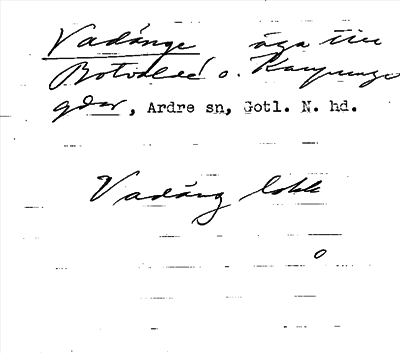 Vadänge äga till
Botvalde o. Kaupungs
gdar, Ardre sn, Gotl. N. hd.
Vadäng lokk
o